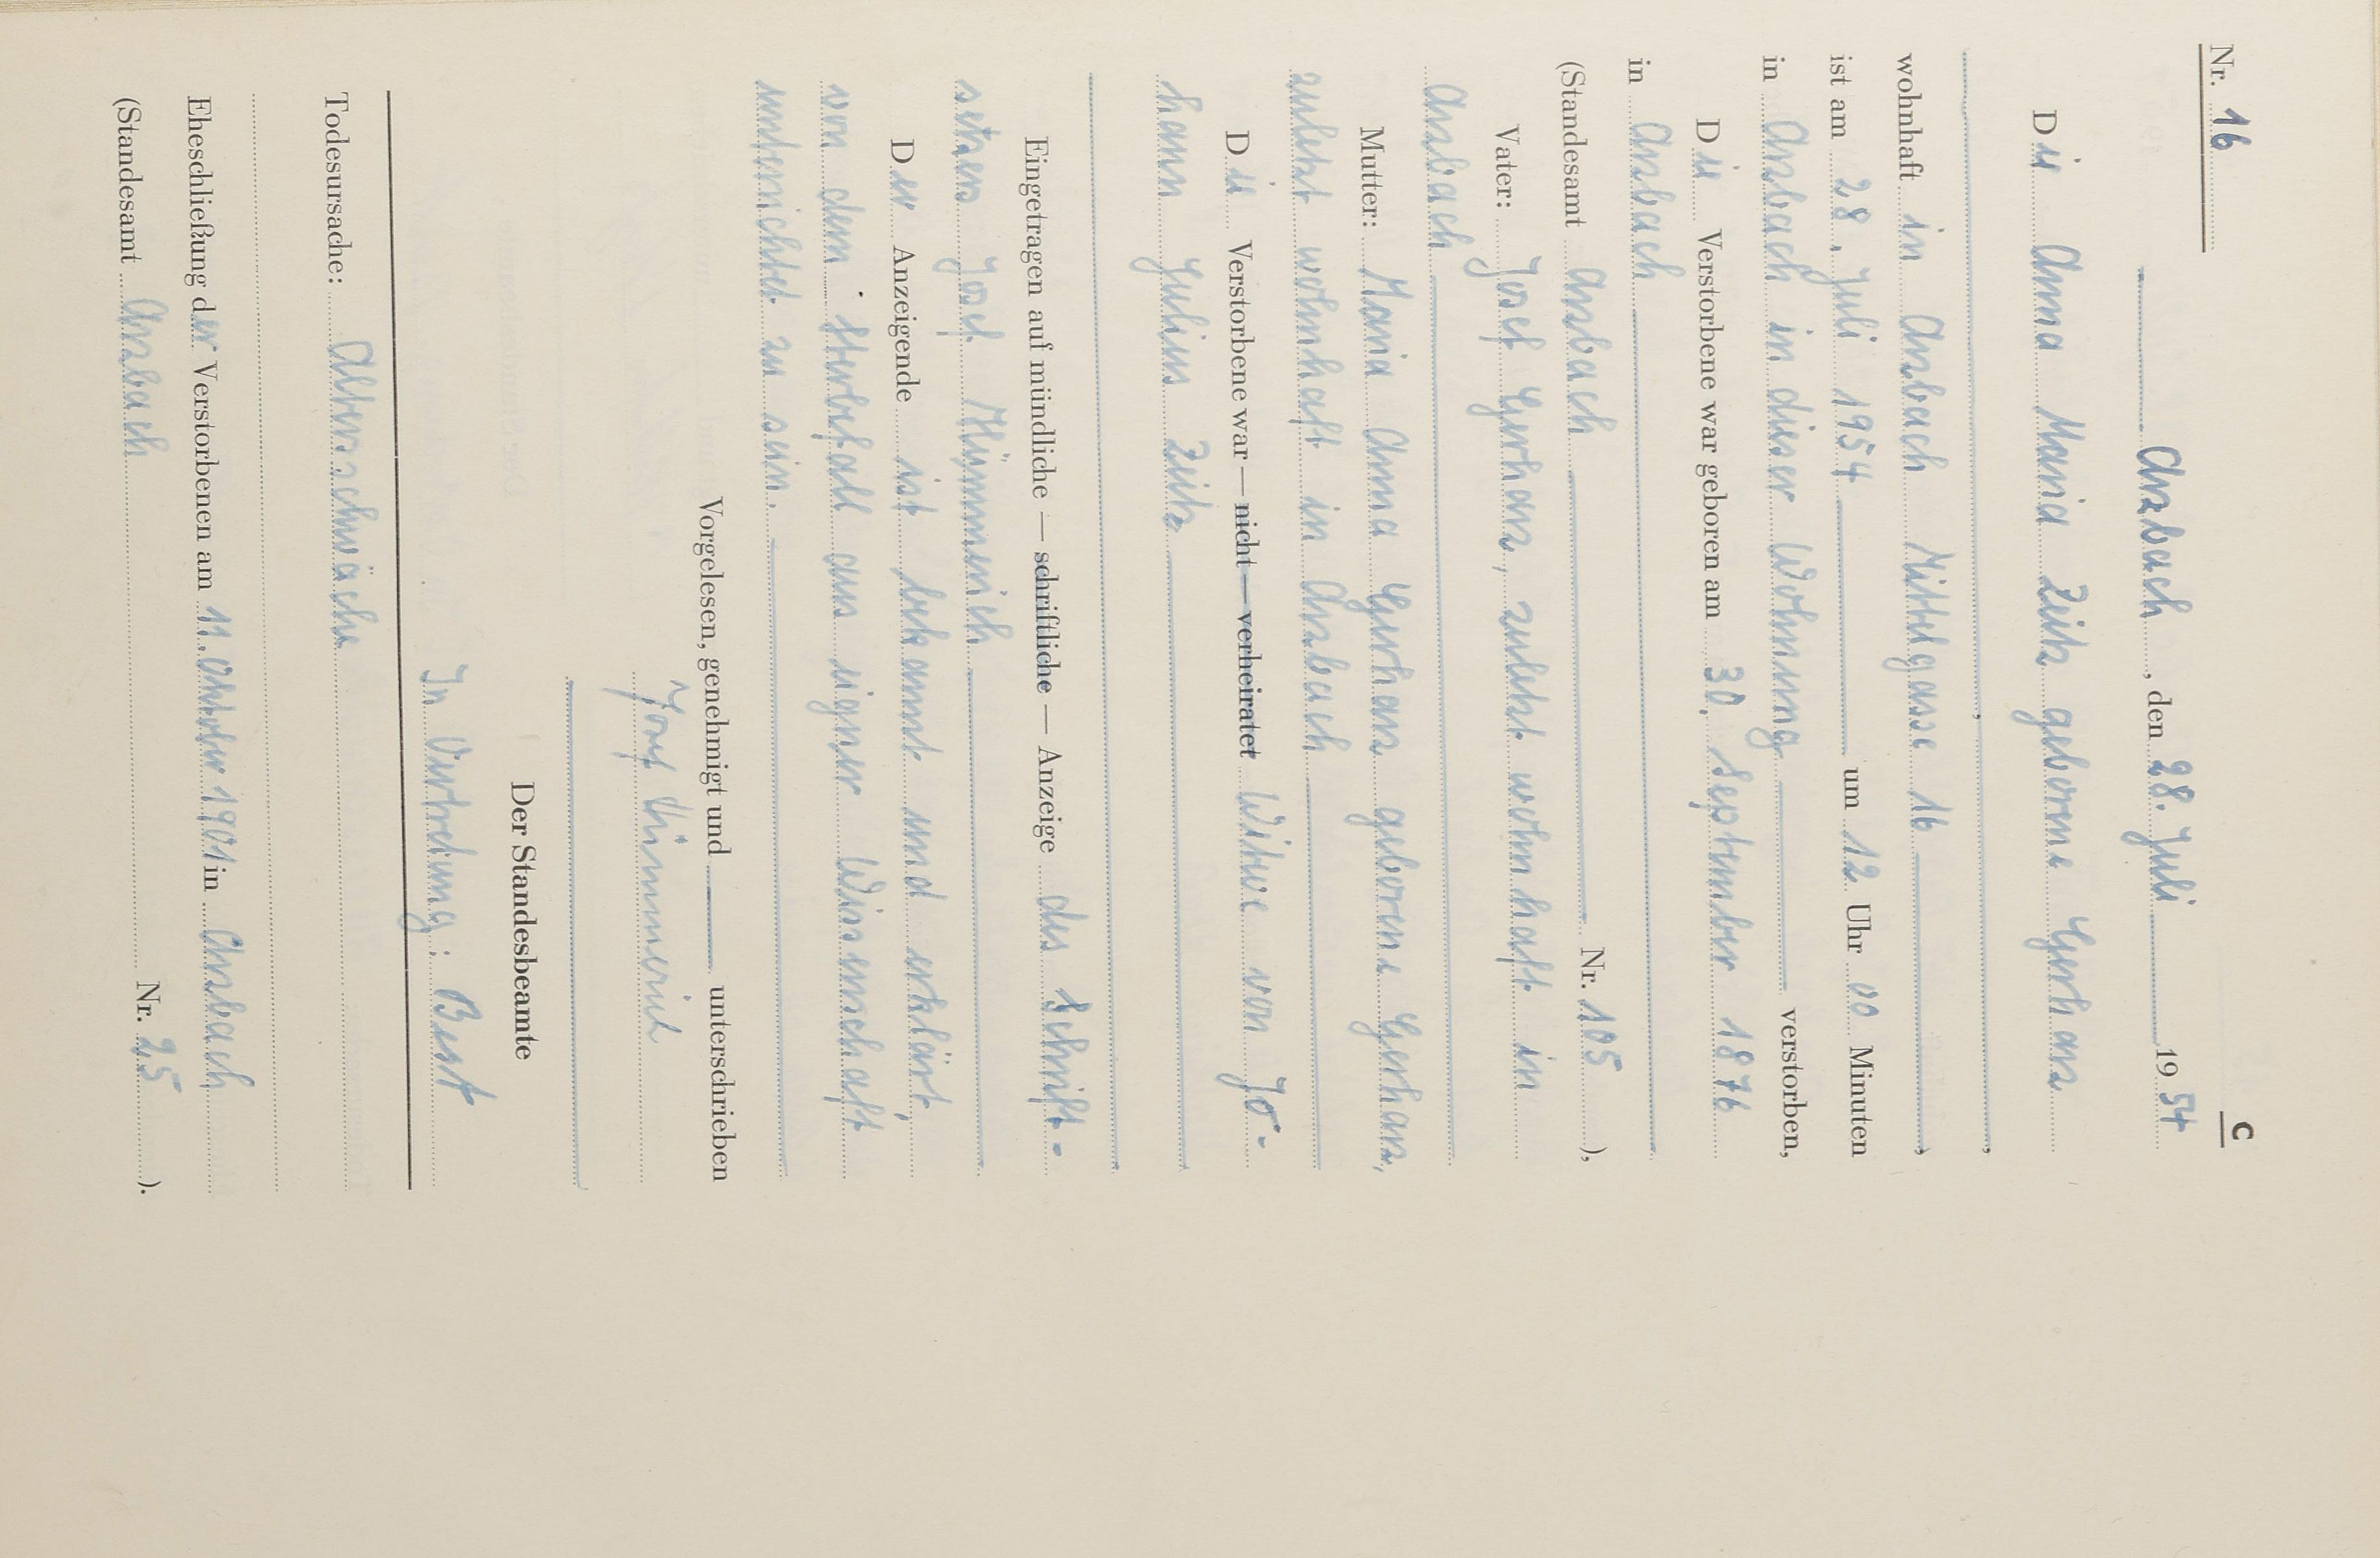 C
Nr. 16
Arzbach, den 28. Juli 1954
Die Anna Maria Zeitz geborene Gerharz
wohnhaft in Arzbach Mittelgasse 16,
ist am 28. Juli 1954 um 12 Uhr 00 Minuten
in Arzbach in dieser Wohnung verstorben,
Die Verstorbene war geboren am 30. September 1876
in Arzbach
(Standesamt Arzbach Nr. 105),
Vater: Josef Gerharz, zuletzt wohnhaft in
Arzbach
Mutter: Maria Anna Gerharz geborene Gerharz,
zuletzt wohnhaft in Arzbach
Die Verstorbene war — nicht — verheiratet Witwe von Jo-
hann Julius Zeitz
Eingetragen auf mündliche — schriftliche — Anzeige des Schrift-
setzers Josef Hümmerich
Der Anzeigende ist bekannt und erklärt,
von dem Sterbefall aus eigner Wissenschaft
unterrichtet zu sein.
Vorgelesen, genehmigt und unterschrieben
Josef Hümmerich
Der Standesbeamte
In Vertretung: Best
Todesursache: Altersschwäche
Eheschließung der Verstorbenen am 11. Oktober 1901 in Arzbach
(Standesamt Arzbach Nr. 25).